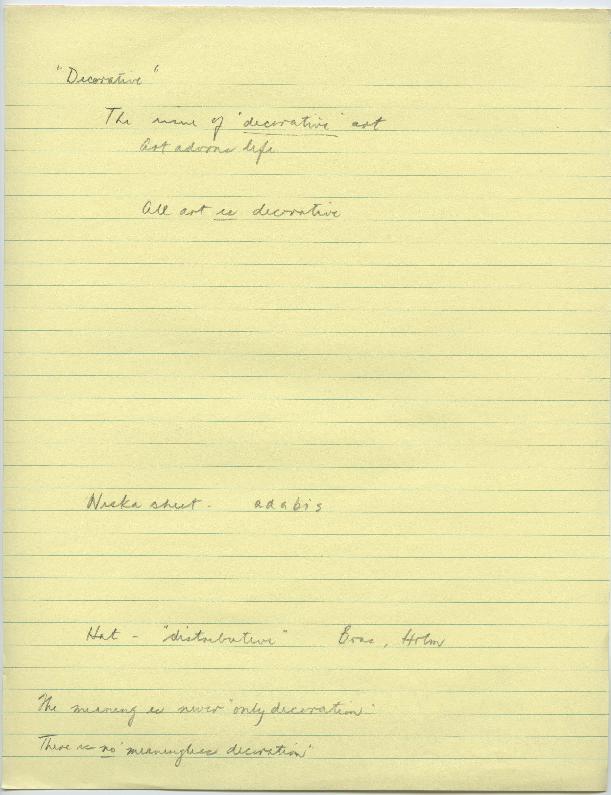 "Decorative"
The name of 'decorative' art
Art adorns life
All art is decorative
Niska shirt - adabis
Hat - "distributive" Boas, Holm
The meaning is never "only decoration."
There is no 'meaningless decoration'